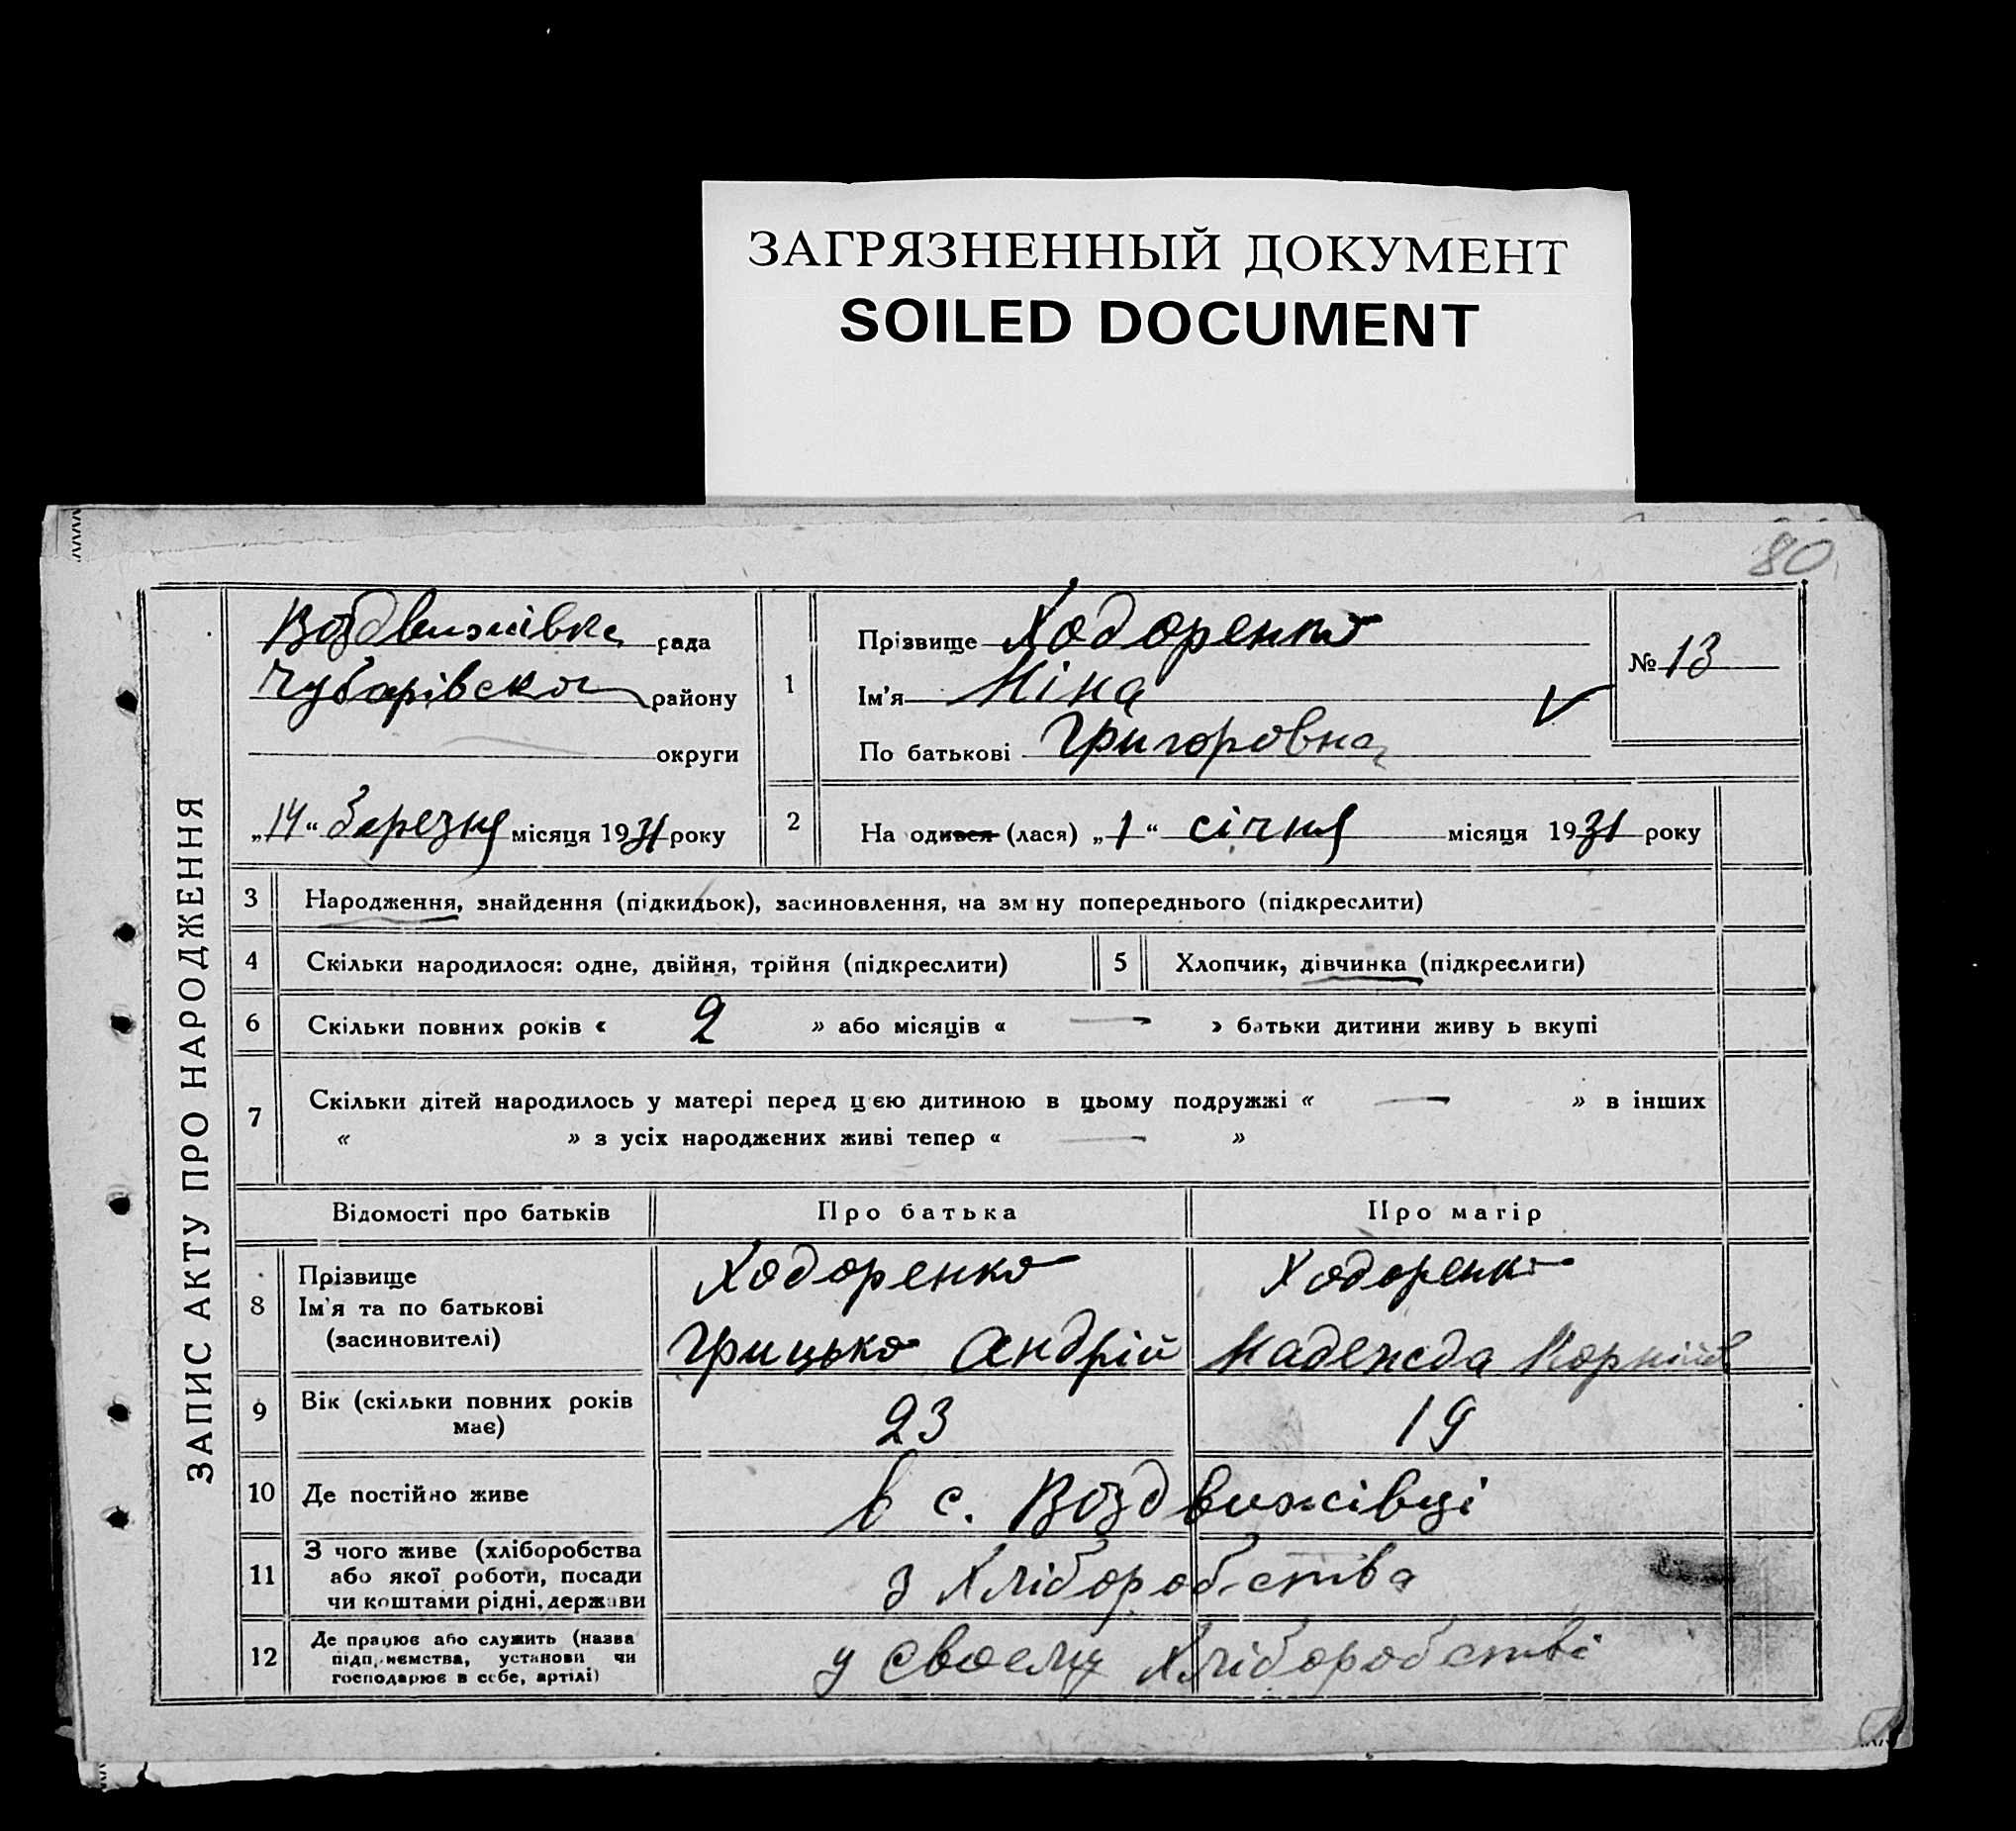 ЗАГРЯЗНЕННЫЙ ДОКУМЕНТ
SOILED DOCUMENT
80
ЗАПИС АКТУ ПРО НАРОДЖЕННЯ
Воздвижівка рада
Чубарівсько району
округи
„14“ Березня місяця 1931 року
1
Прізвище Ходоренко
Ім'я Ніна
По батькові Григоровна
№ 13
2 На одився (лася) „1“ січня місяця 1931 року
3 Народження, знайдення (підкидьок), засиновлення, на зм ну попереднього (підкреслити)
4 Скільки народилося: одне, двійня, трійня (підкреслити) 5 Хлопчик, дівчинка (підкреслиги)
6 Скільки повних років « 2 » або місяців « — » батьки дитини живу ь вкупі
7 Скільки дітей народилось у матері перед ц єю дитиною в цьому подружжі « — » в інших
« » з усіх народжених живі тепер « — »
Відомості про батьків Про батька Про магір
8 Прізвище
Ім'я та по батькові
(засиновителі)
Ходоренко
Грицько Андрій
Ходоренко
Надежда Корній
9 Вік (скільки повних років
має)
23 19
10 Де постійно живе в с. Воздвижівці
11 З чого живе (хліборобства
або якої роботи, посади
чи коштами рідні, держави
з Хліборобства
12 Де працює або служить (назва
підприємства, установи чи
господарює в себе, артілі)
у своему Хліборобстві